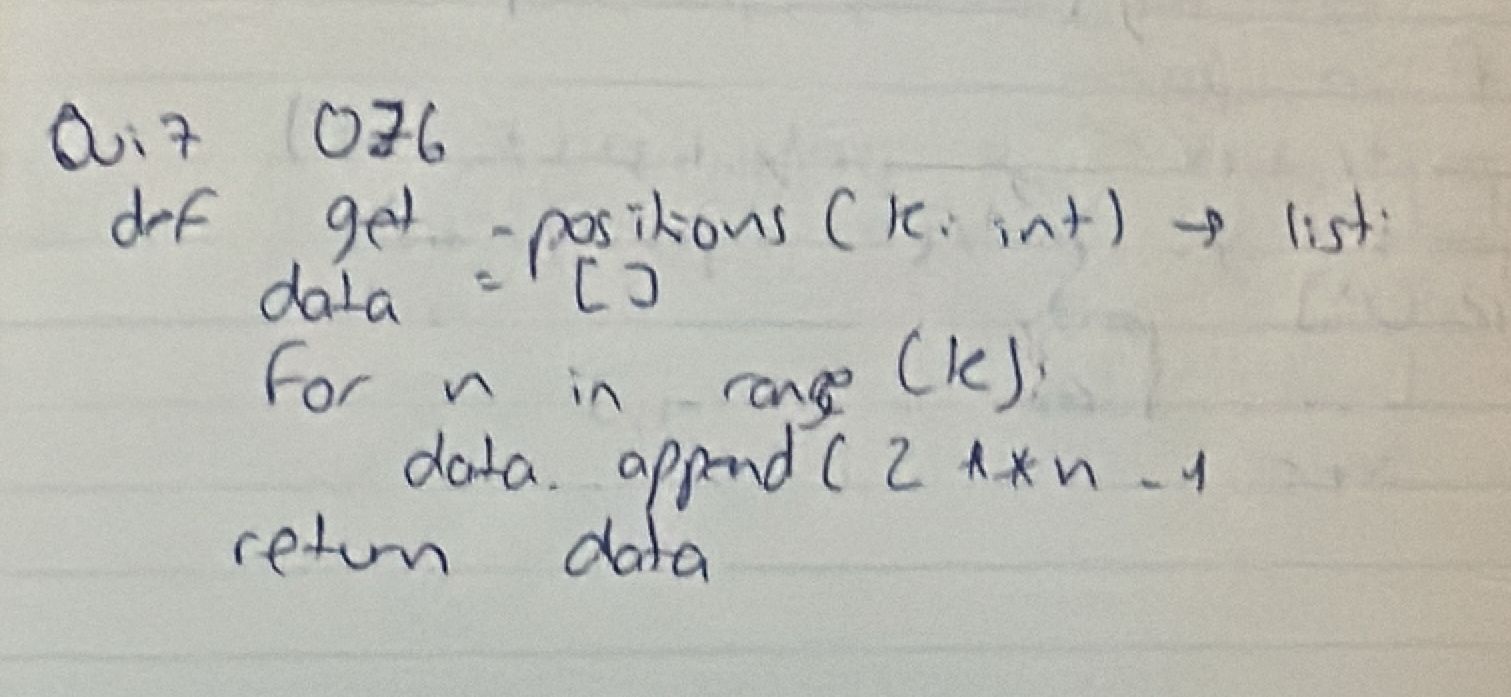 Quiz 076
def get_positions(k: int) → list:
data = []
for n in range (k):
data.append(2**n-1
return data